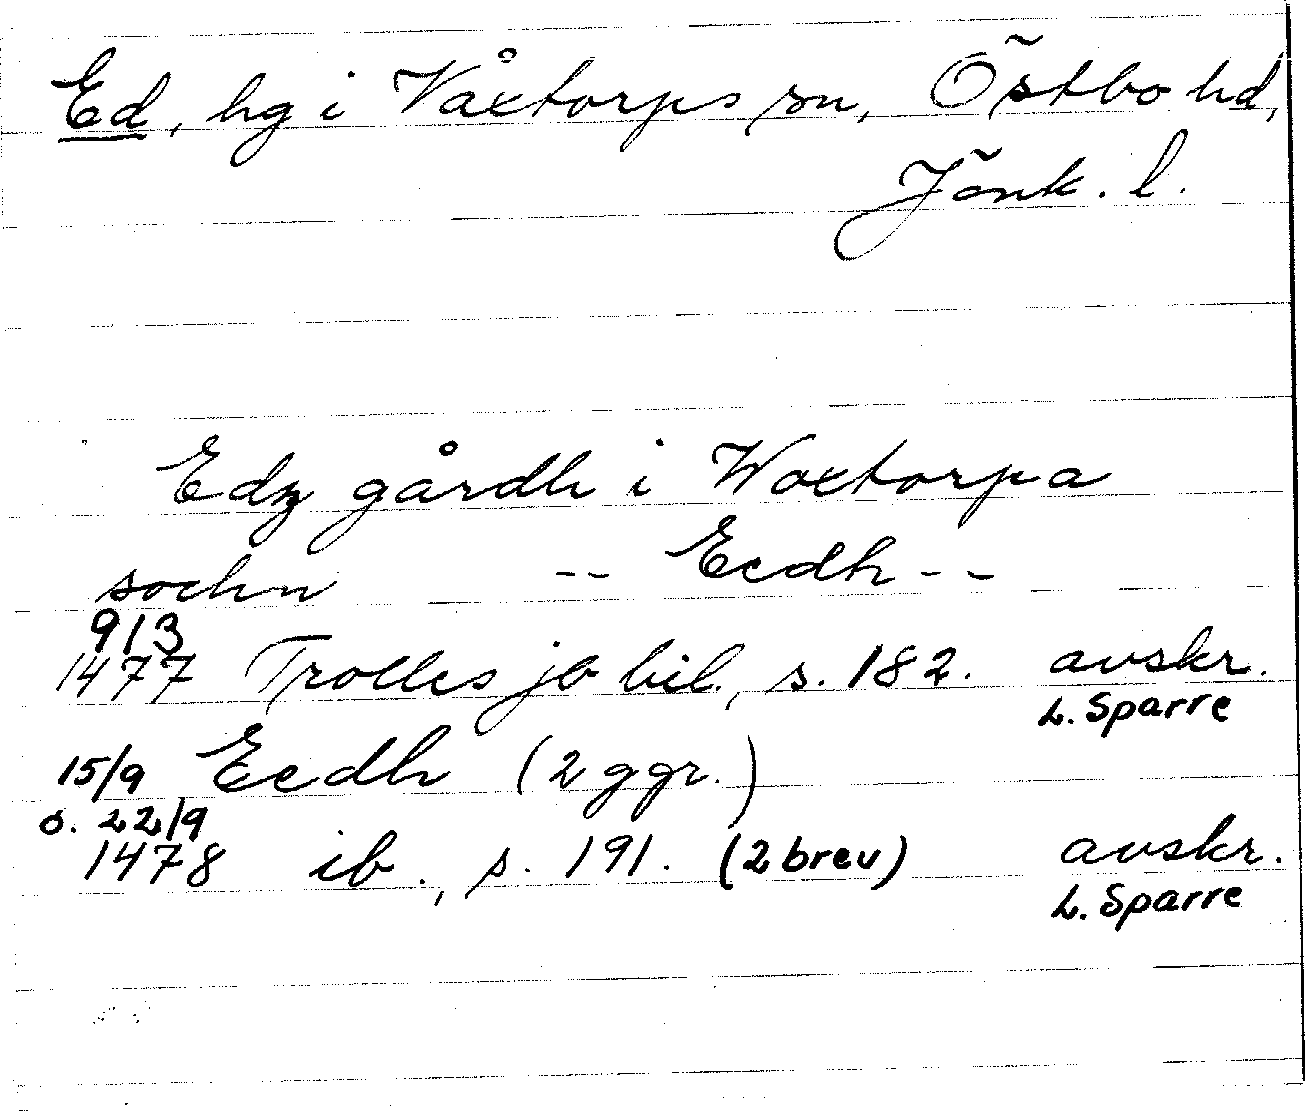 Ed, hg i Våxtorps sn, Östbo hd,
Jönk. l.
Edz gårdh i Woxtorpa
sochn -- Eedh --
9/3
1477 Trolles jb bil., s. 182. avskr.
L. Sparre
15/9 Eedh (2 ggr.)
o. 22/9
1478 ib., s. 191. (2 brev) avskr.
L. Sparre